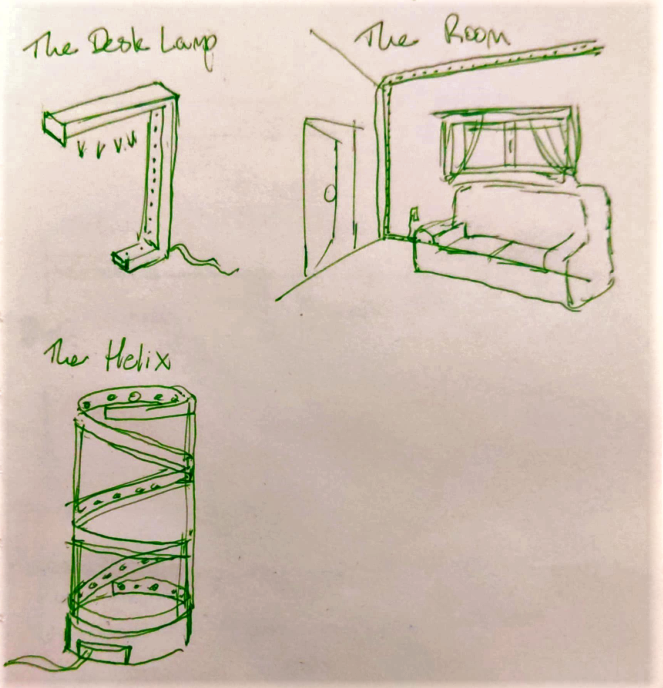 The Desk Lamp
The Room
The Helix